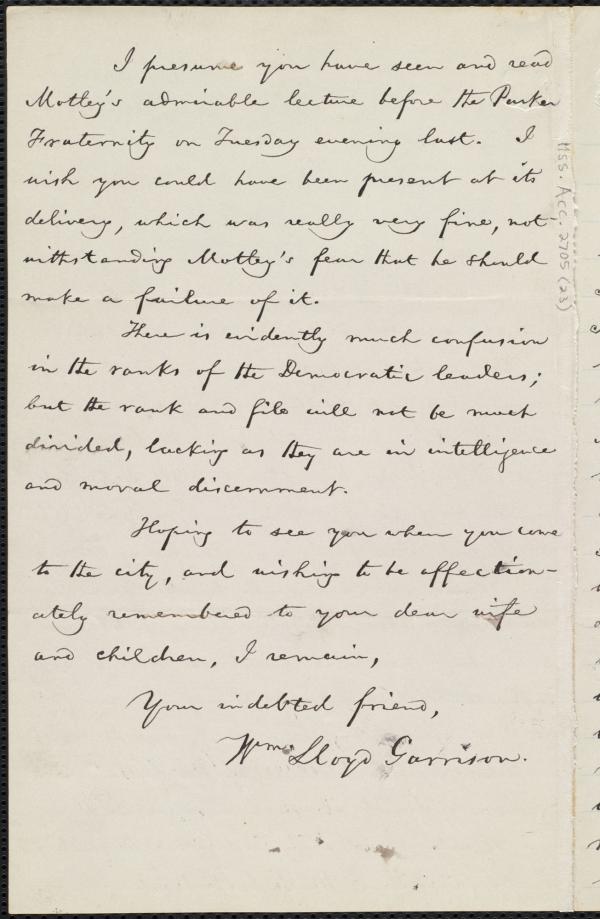 I presume you have seen and read
Motley's admirable lecture before the Parker
Fraternity on Tuesday evening last. I
wish you could have been present at its
delivery, which was really very fine, not-
withstanding Motley's fear that he should
make a failure of it.
There is evidently much confusion
in the ranks of the Democratic leaders;
but the rank and file will not be much
divided, lacking as they are in intelligence
and moral discernment.
Hoping to see you when you come
to the city, and wishing to be affection-
ately remembered to your dear wife
and children, I remain,
Your indebted friend,
Wm. Lloyd Garrison.
Mss. Acc. 2705 (23)